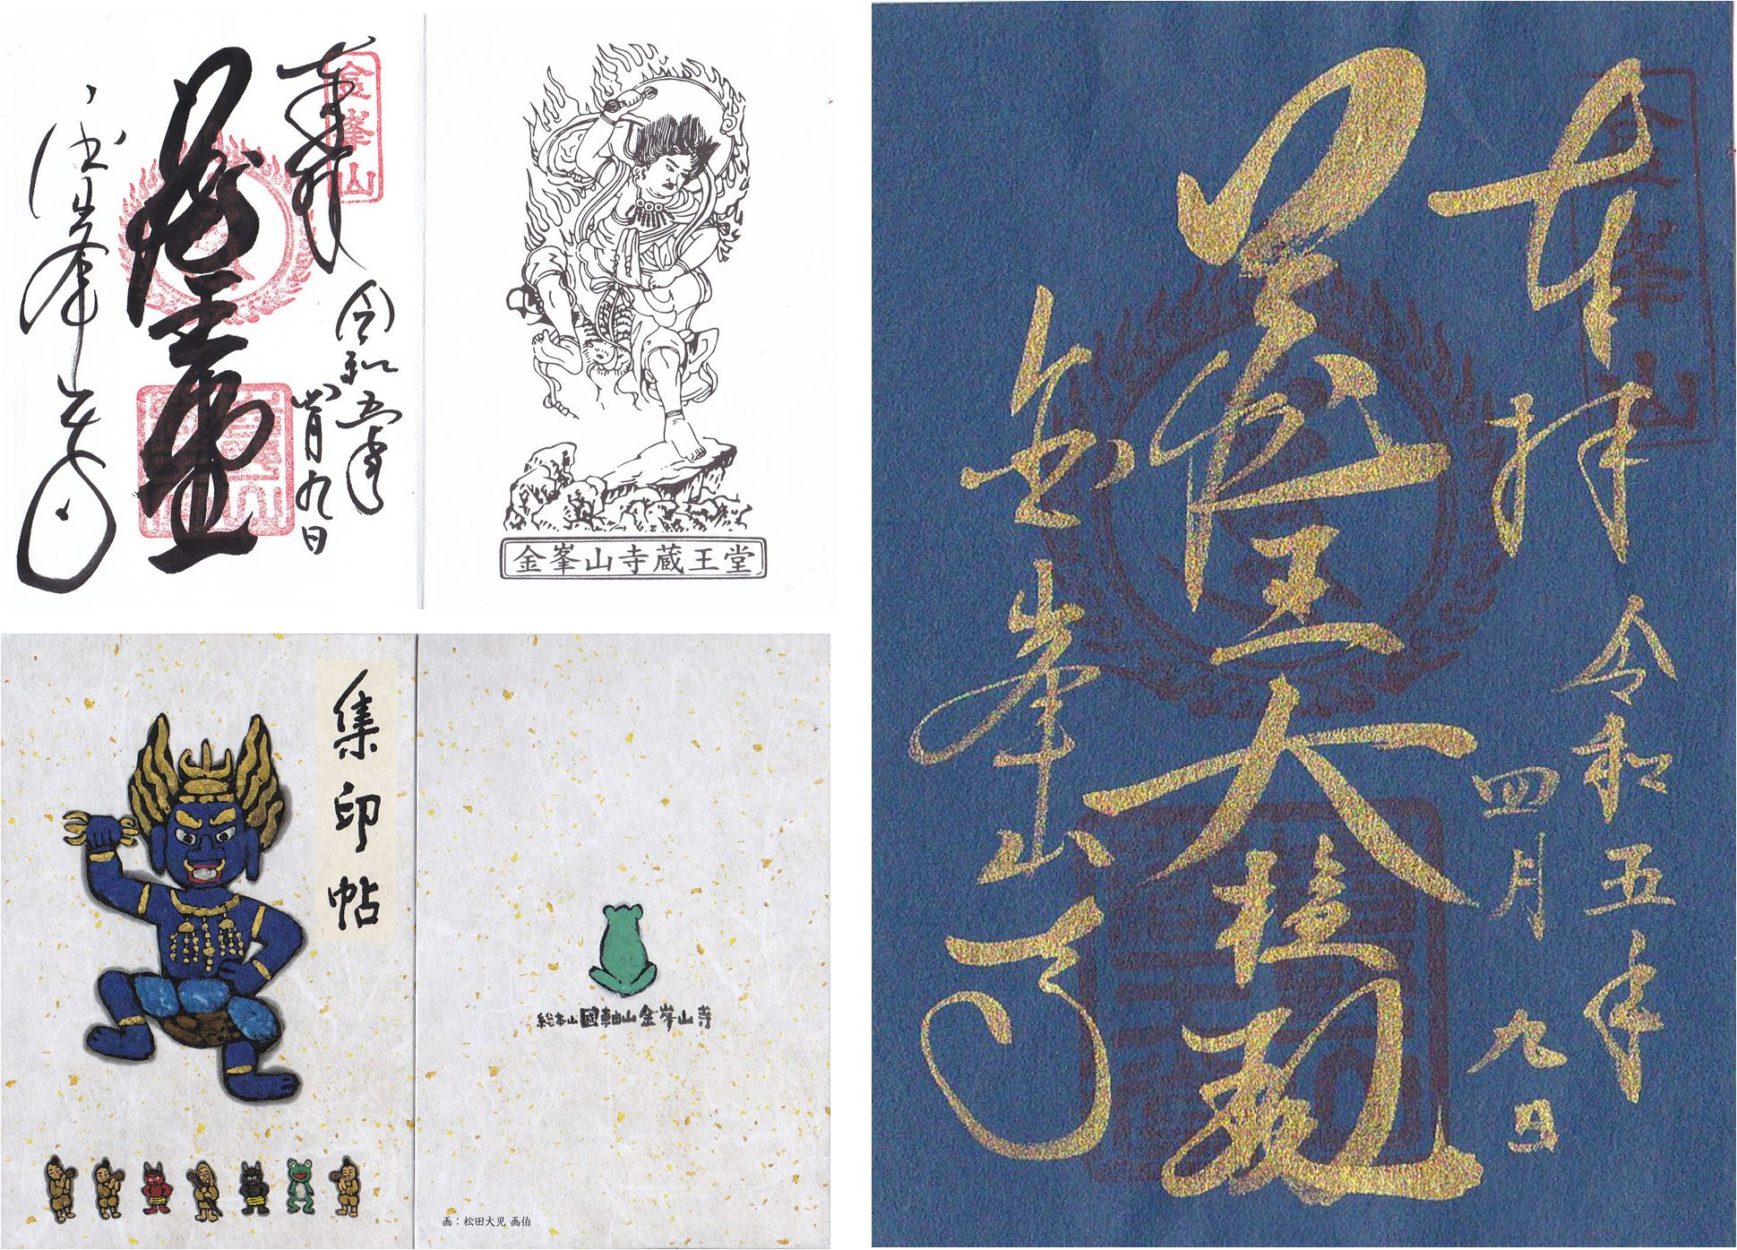 奉拝
金峯山
令和五年
四月九日
蔵王堂
金峯山寺
金峯山寺蔵王堂
集印帖
総本山 國軸山 金峯山寺
画：松田大児 画伯
奉拝
金峯山
令和五年
四月九日
蔵王大権現
金峯山寺